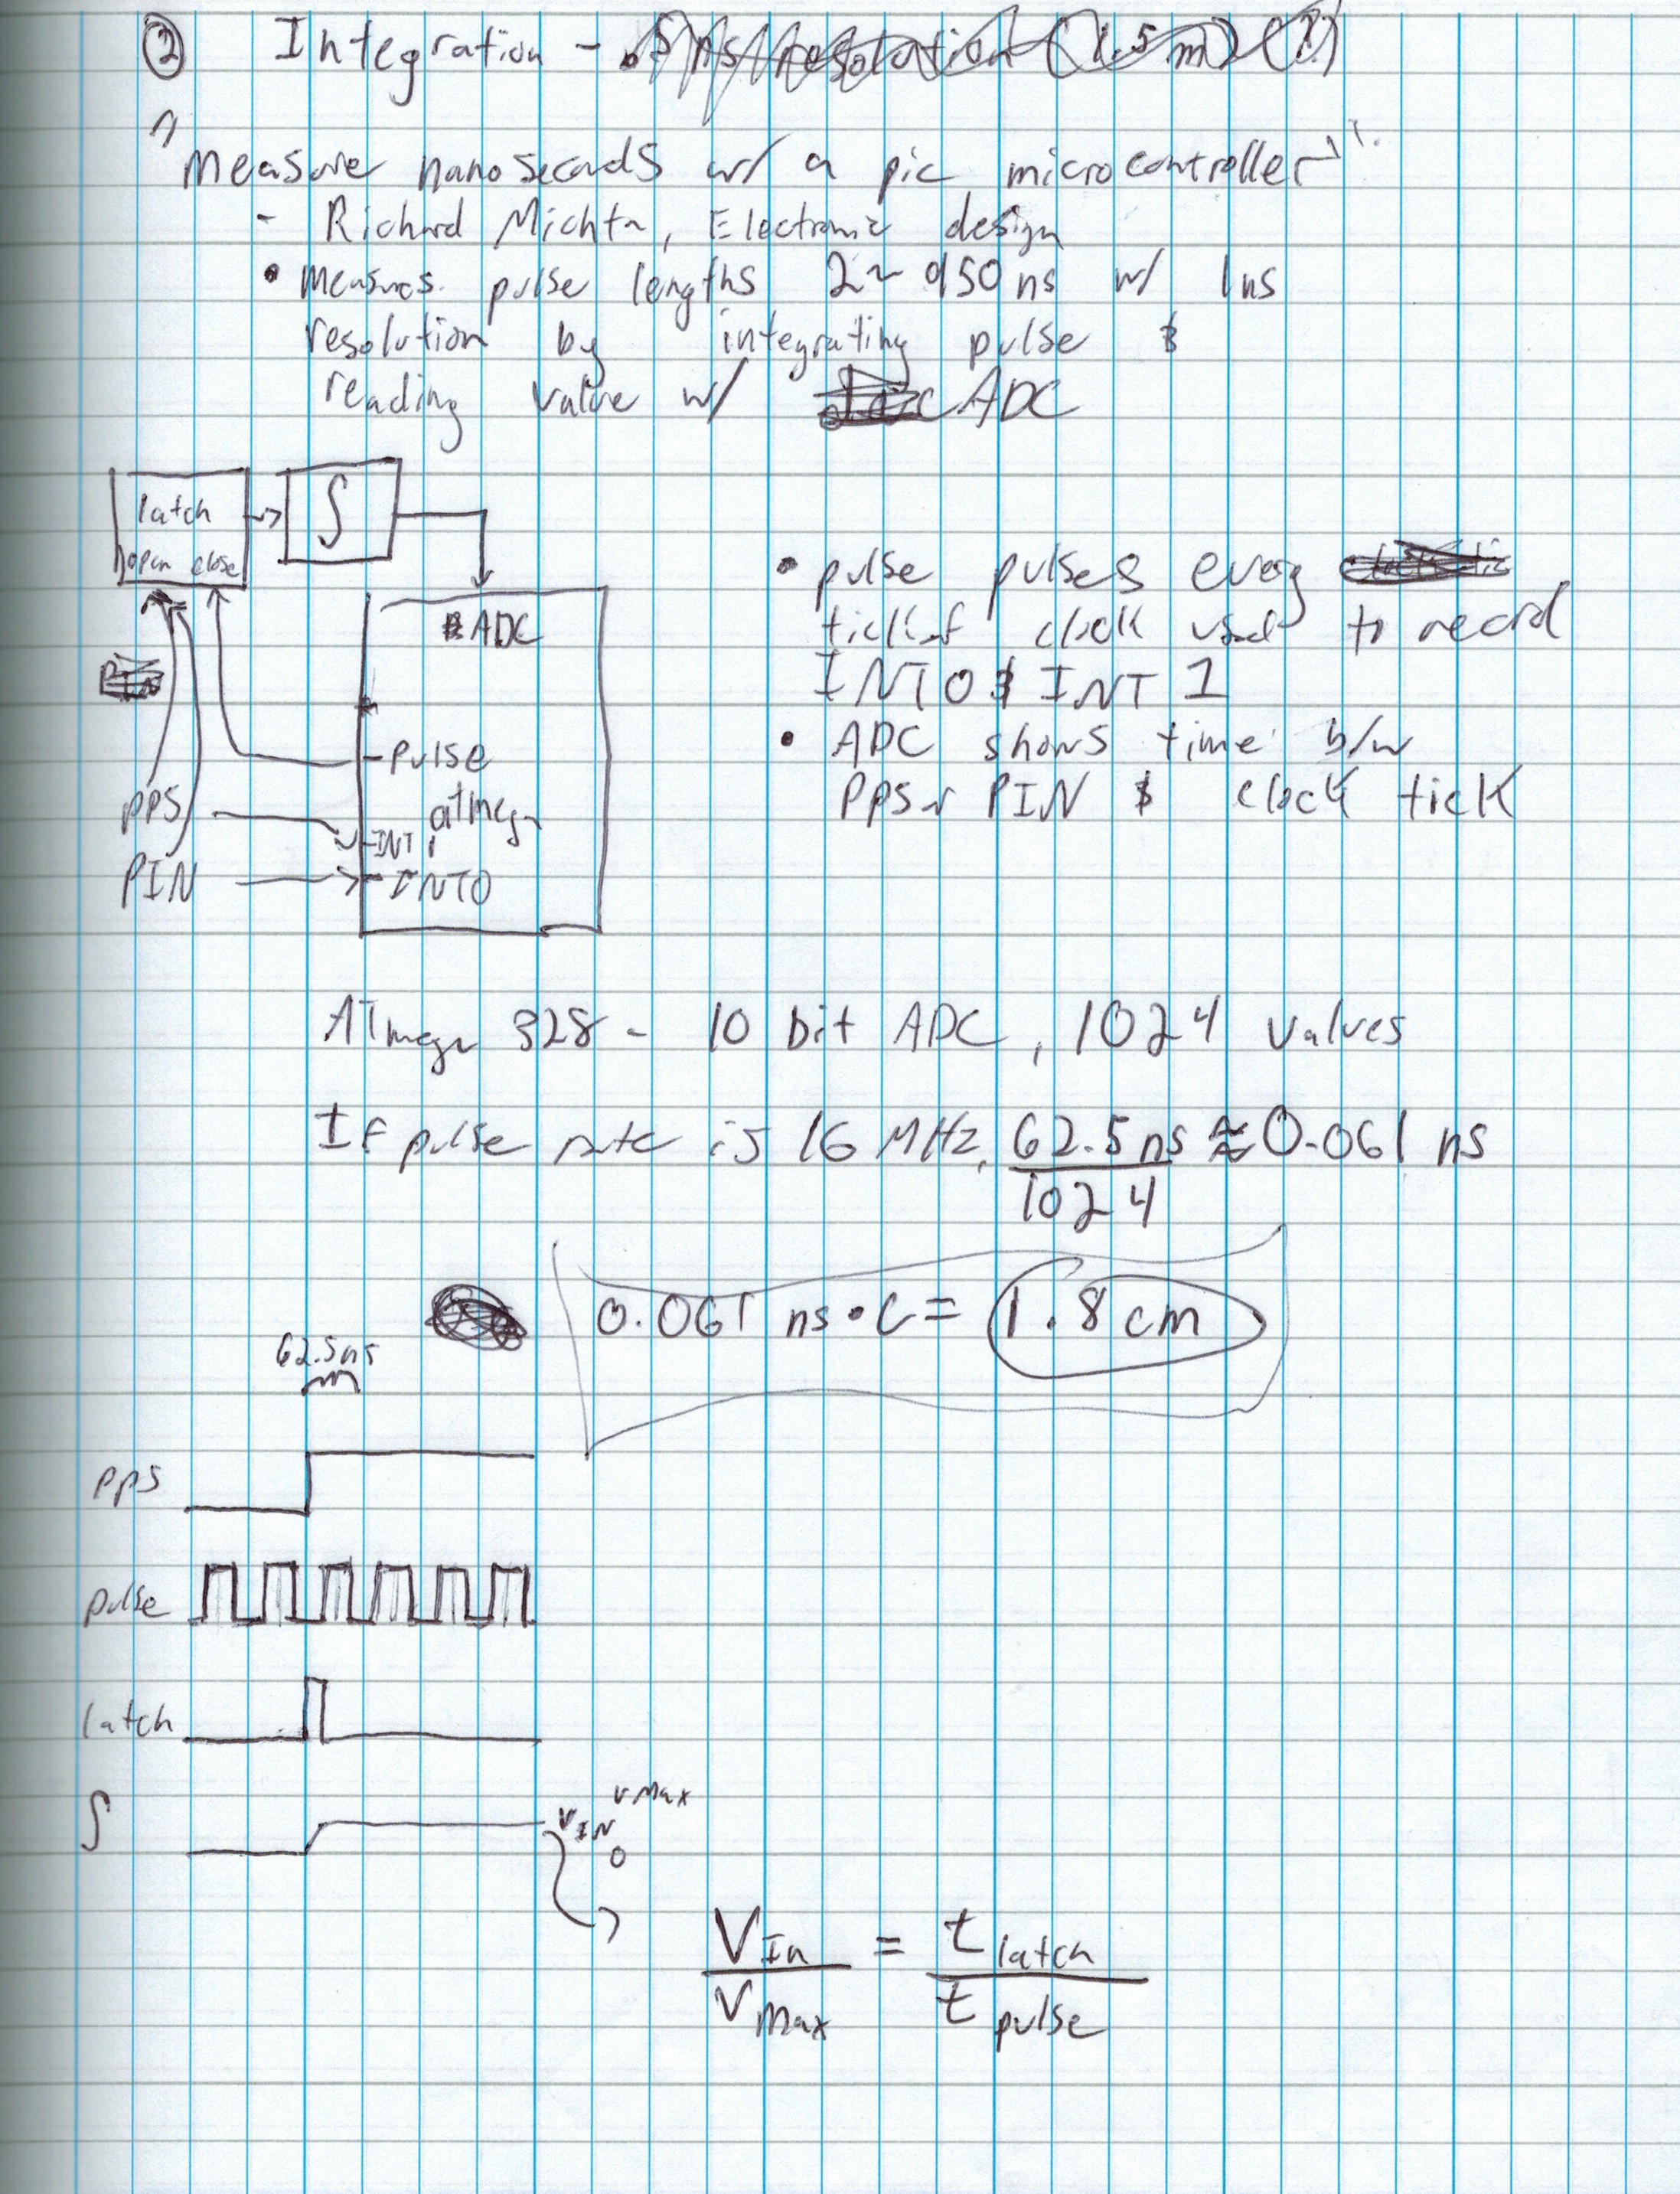 ② Integration -
"Measure nanoseconds w/ a pic microcontroller".
- Richard Michta, Electronic design
• measures pulse lengths 2 ~ 950 ns w/ 1ns
resolution by integrating pulse &
reading value w/ ADC
latch
open close
∫
ADC
pulse
atmega
INT1
INT0
PPS
PIN
• pulse pulses every
tick of clock used to record
INT0 & INT 1
• ADC shows time b/w
PPS or PIN & clock tick
ATmega 328 - 10 bit ADC, 1024 values
If pulse rate is 16 MHz, 62.5 ns / 1024 ≈ 0.061 ns
0.061 ns • C = 1.8 cm
62.5ns
pps
pulse
latch
∫
V IN
V Max
0
V In / V Max = t latch / t pulse